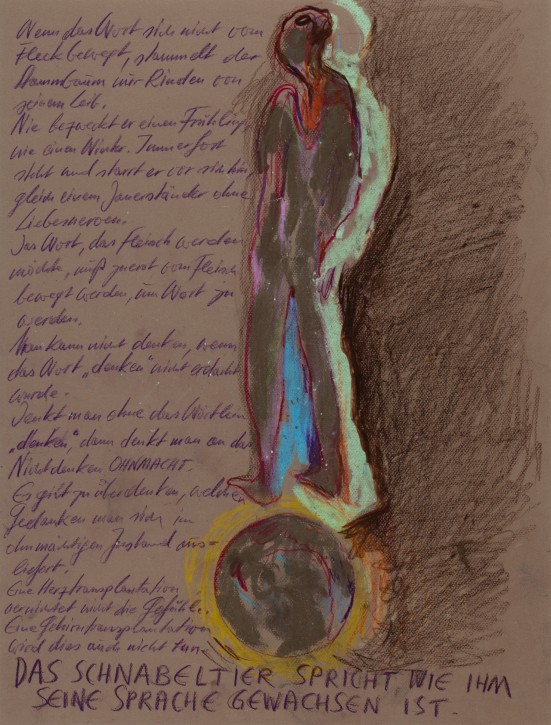 Wenn das Wort sich nicht vom
Fleck bewegt, stammelt der
Stammbaum nur Rinden von
seinem Leib.
Nie bezweckt er einen Frühling
wie einen Winter. Immerfort
steht und starrt er vor sich hin
gleich einem Dauerständer ohne
Liebesnerven.
Das Wort, das Fleisch werden
möchte, muß zuerst vom Fleisch
bewegt werden, um Wort zu
werden.
Man kann nicht denken, wenn
das Wort „denken“ nicht erdacht
wurde.
Denkt man ohne das Wörtlein
„denken“, dann denkt man an das
Nichtdenken OHNMACHT.
Es gilt zu überdenken, welchen
Gedanken man sich im
ohnmächtigen Zustand aus-
liefert.
Eine Herztransplantation
vernichtet nicht die Gefühle.
Eine Gehirntransplantation
wird dies auch nicht tun.
DAS SCHNABELTIER SPRICHT, WIE IHM
SEINE SPRACHE GEWACHSEN IST.